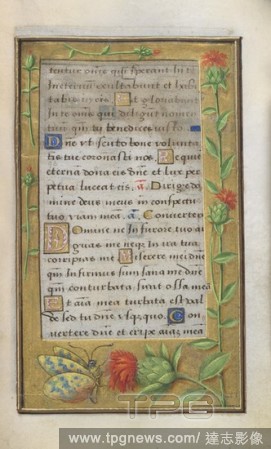 tentur om̄e qui sperant in te
In eternū exultabunt et habi
tabis in eis. Et gloriabunt
In te oms qui diligūt nomen
tuum qm tu benedices iusto
Dne vt scuto bone volunta
tis tue coronasti nos. Requiē
eterna dona eis dn̄e et lux per
petua luceat eis. a. Dirige do
mine deus meus in conspectu
tuo viam meā. a. Conuertere
Domine ne In furore tuo ar
guas me neqz In ira tua
corripias me Miserere mei dn̄e
qm Infirmus sum sana me dn̄e
qm conturbata sunt ossa mea
Et aīa mea turbata est val
de sed tu dn̄e vsqzquo. Con
uertere dn̄e et eripe aīaz meā
TPG
www.tpgnews.com / 達志影像